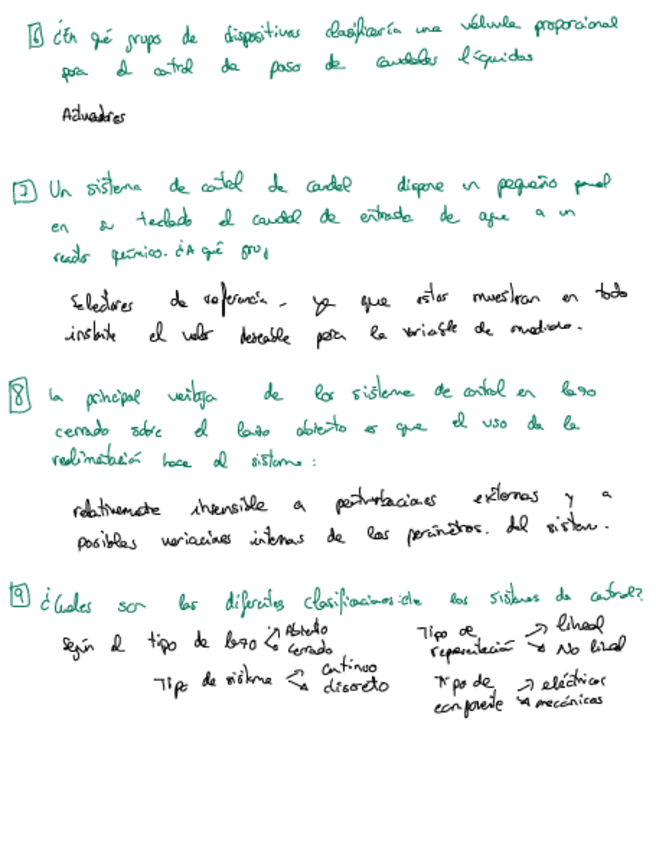 6 ¿En qé grupo de dispositivos clasificaría una válvula proporcional
para el control de paso de caudales líquidos
Actuadores
7 Un sistema de control de caudal dispone un pequeño panel
en su teclado el caudal de entrada de agua a un
reactor químico. ¿A qué gru
Selectores de referencia, ya que estos muestran en todo
instante el valor deseable para la variable de medida.
8 La principal ventaja de los sistema de control en lazo
cerrado sobre el lazo abierto es que el uso de la
realimentación hace al sistema:
relativamente insensible a perturbaciones externas y a
posibles variaciones internas de los parámetros. del sistem.
9 ¿Cuales son las diferentes clasificaciones de los sistemas de control?
Según el tipo de lazo Abierto
Cerrado
Tipo de
representación lineal
No lineal
Tipo de sistema continuo
discreto
Tipo de
componente eléctricos
mecánicos